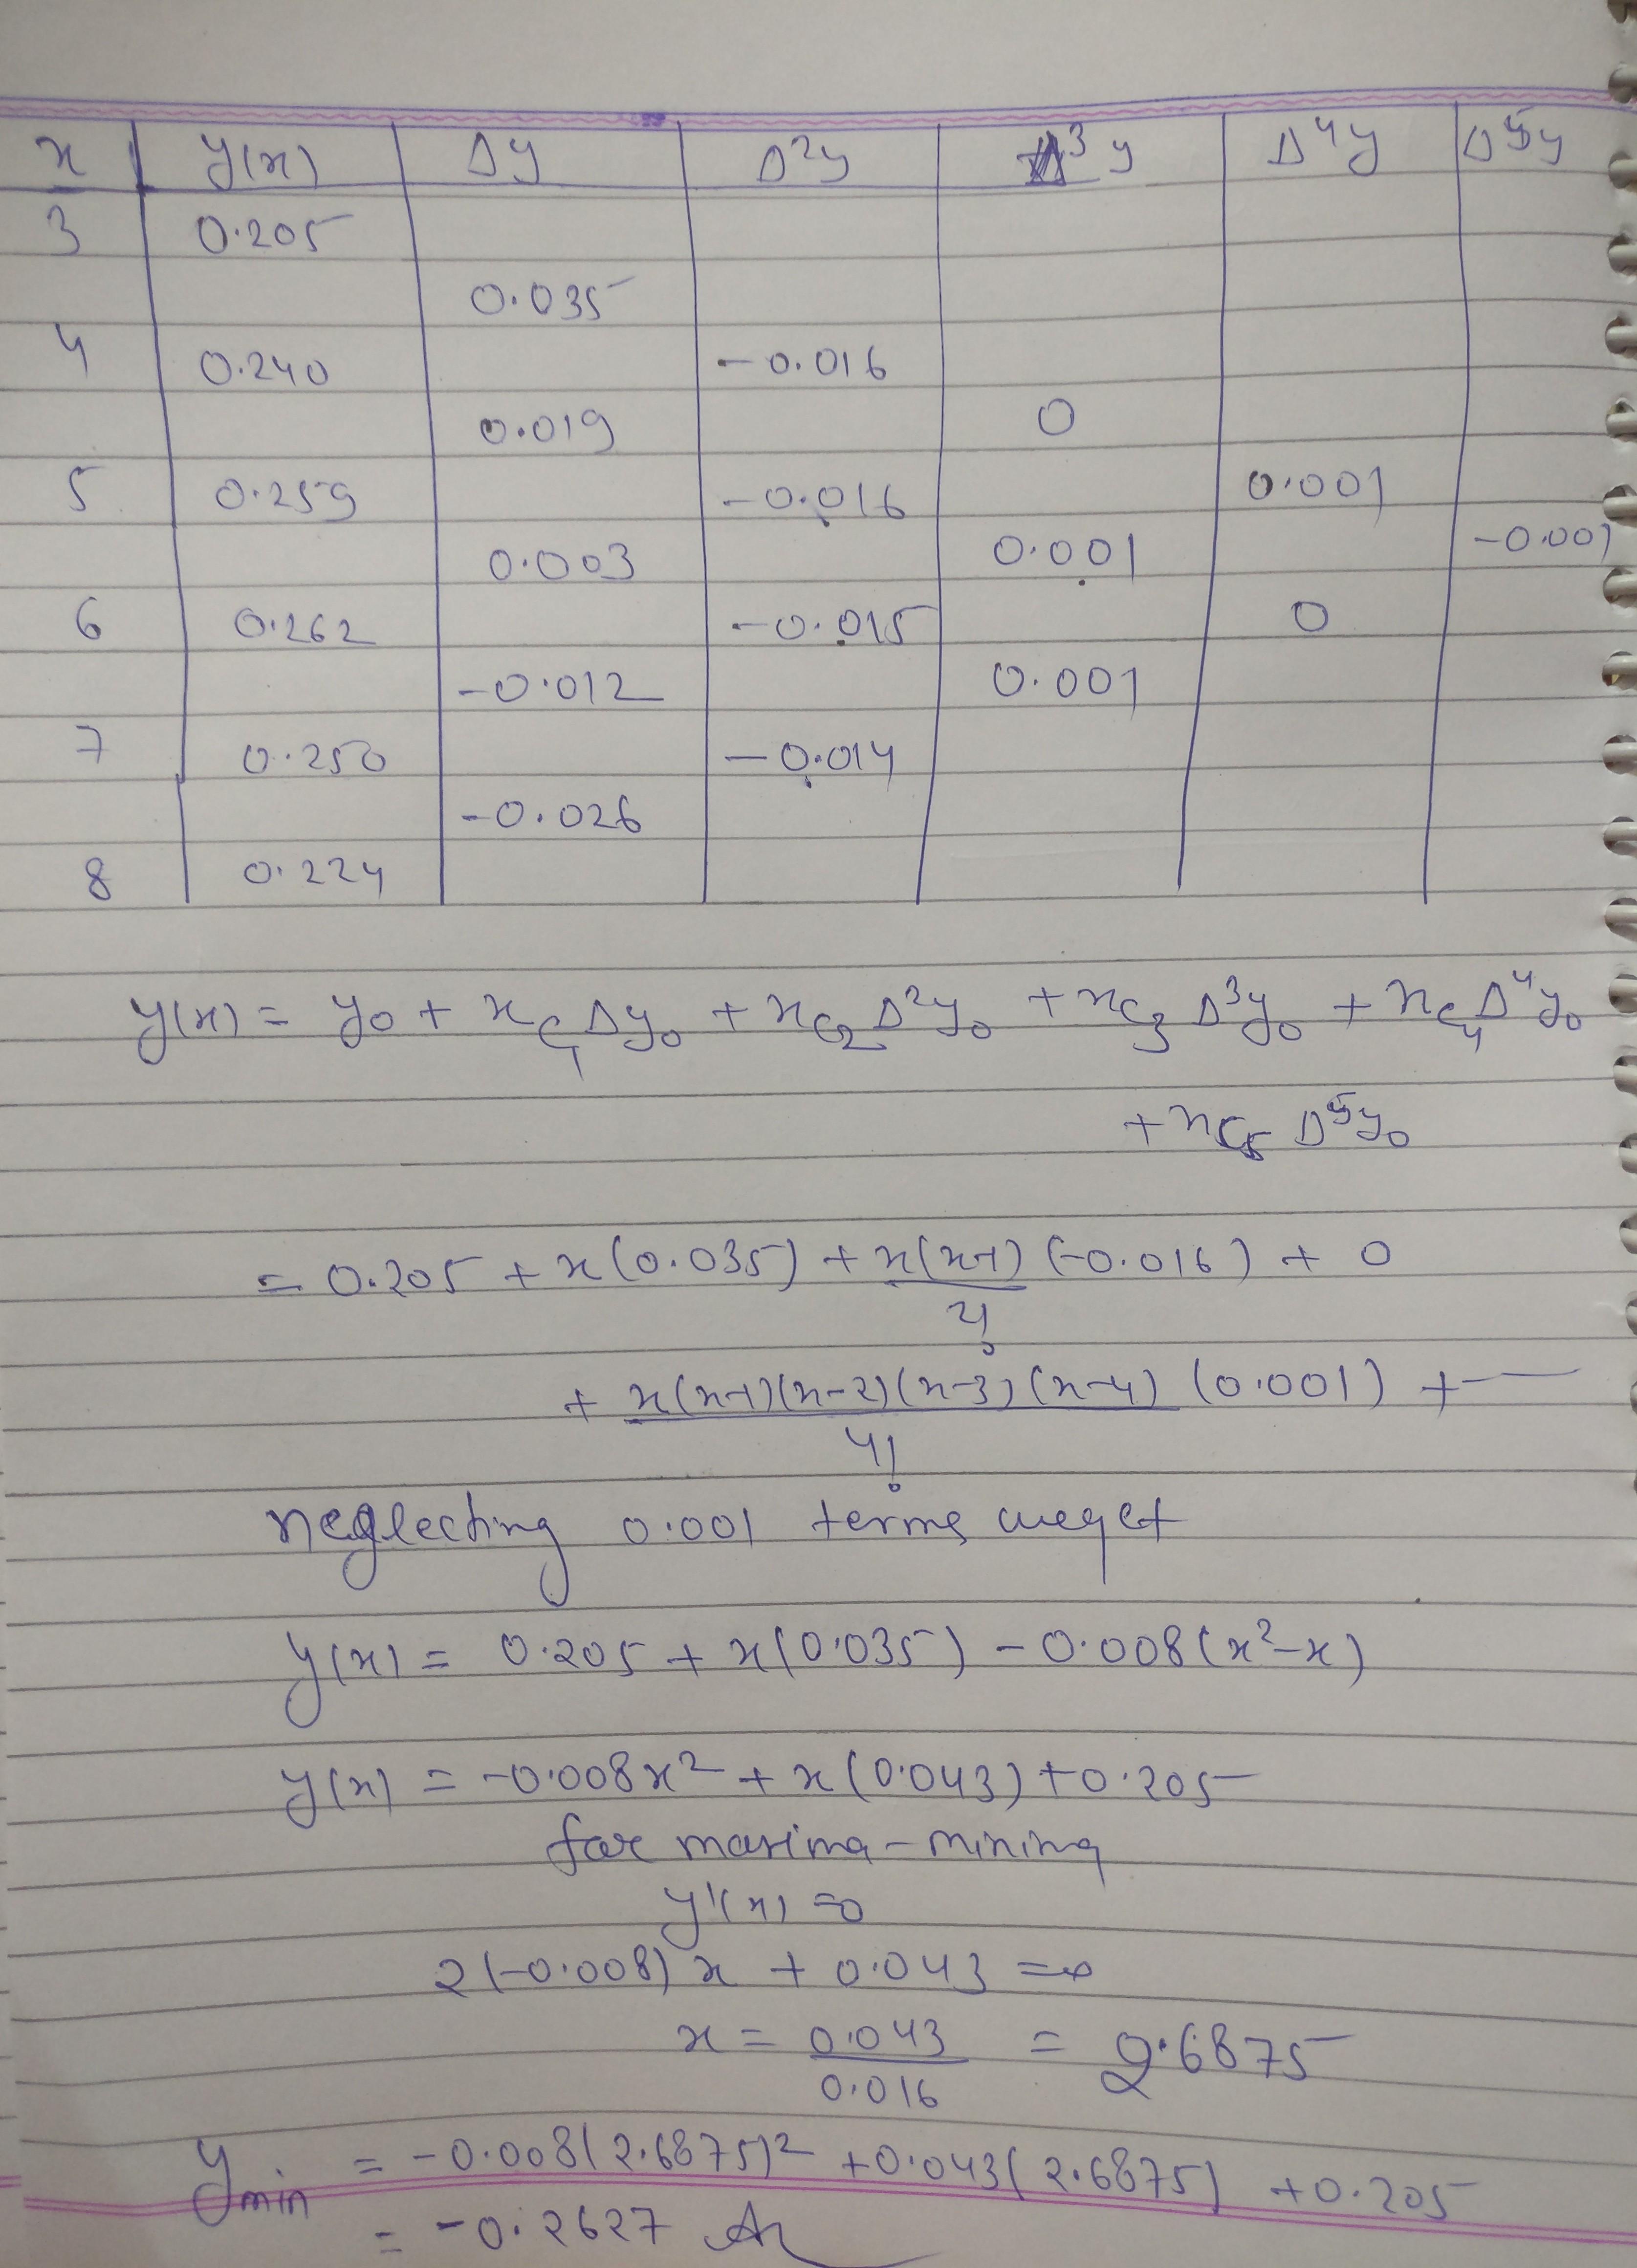 x y(x) Δy Δ²y Δ³y Δ⁴y Δ⁵y
3 0.205
0.035
4 0.240 -0.016
0.019 0
5 0.259 -0.016 0.001
0.003 0.001 -0.001
6 0.262 -0.015 0
-0.012 0.001
7 0.250 -0.014
-0.026
8 0.224
y(x) = y₀ + xc₁ Δy₀ + xc₂ Δ²y₀ + xc₃ Δ³y₀ + xc₄ Δ⁴y₀
+ xc₅ Δ⁵y₀
= 0.205 + x(0.035) + x(x-1) (-0.016) + 0
2!
+ x(x-1)(x-2)(x-3)(x-4) (0.001) + —
4!
neglecting 0.001 terms we get
y(x) = 0.205 + x(0.035) - 0.008(x²-x)
y(x) = -0.008x² + x(0.043) + 0.205
for maxima - minima
y'(x) = 0
2(-0.008)x + 0.043 = 0
x = 0.043 = 2.6875
0.016
y min = -0.008(2.6875)² + 0.043(2.6875) + 0.205
= -0.2627 Ar